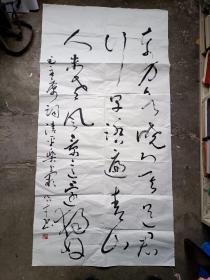 东方欲晓莫道君
行早踏遍青山
人未老风景这边独好
毛主席词清平乐